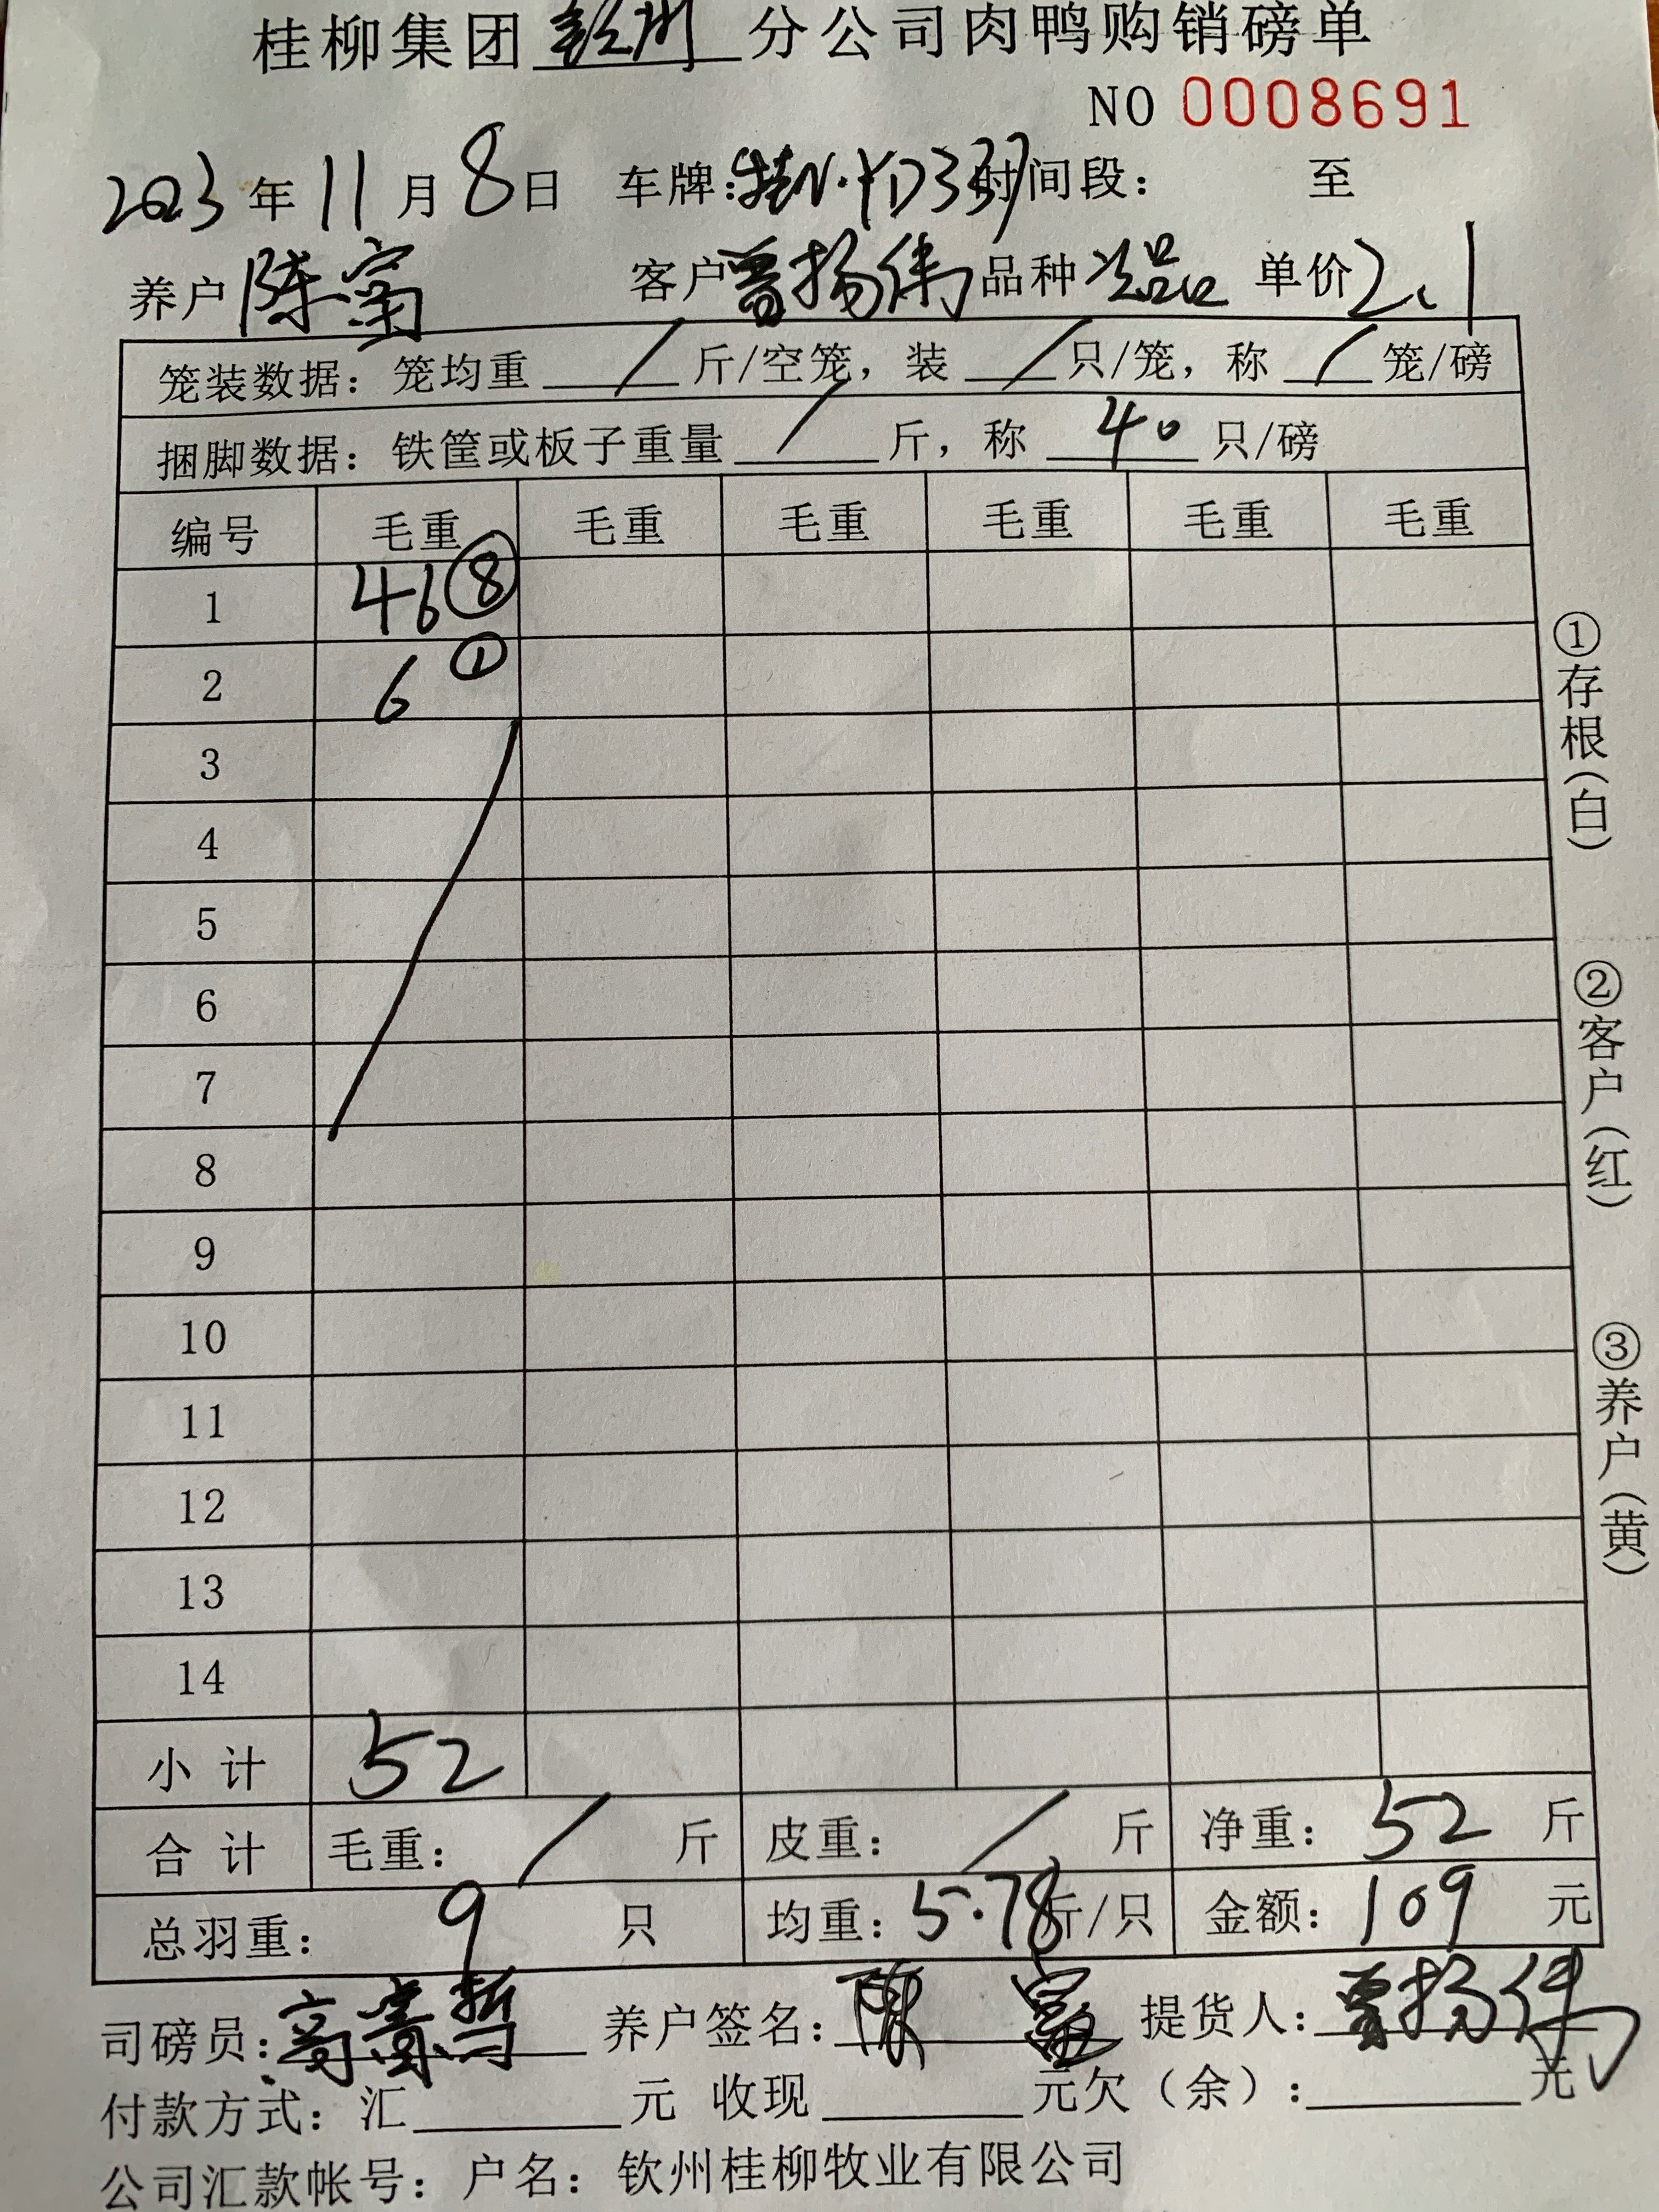 桂柳集团钦州分公司肉鸭购销磅单
NO 0008691
2023年11月8日 车牌:桂N·YD337时间段: 至
养户 陈富 客户 曾扬伟 品种 次品 单价 2.1
笼装数据:笼均重 / 斤/空笼,装 / 只/笼,称 / 笼/磅
捆脚数据:铁筐或板子重量 / 斤,称 40 只/磅
编号 毛重 毛重 毛重 毛重 毛重 毛重
1 46 ⑧
2 6 ①
3
4
5
6
7
8
9
10
11
12
13
14
小计 52
合计 毛重: / 斤 皮重: / 斤 净重: 52 斤
总羽重: 9 只 均重: 5.78 斤/只 金额: 109 元
司磅员: 养户签名:陈富 提货人:曾扬伟
付款方式:汇 元 收现 元欠(余): 元
公司汇款帐号:户名:钦州桂柳牧业有限公司
①存根(白)
②客户(红)
③养户(黄)